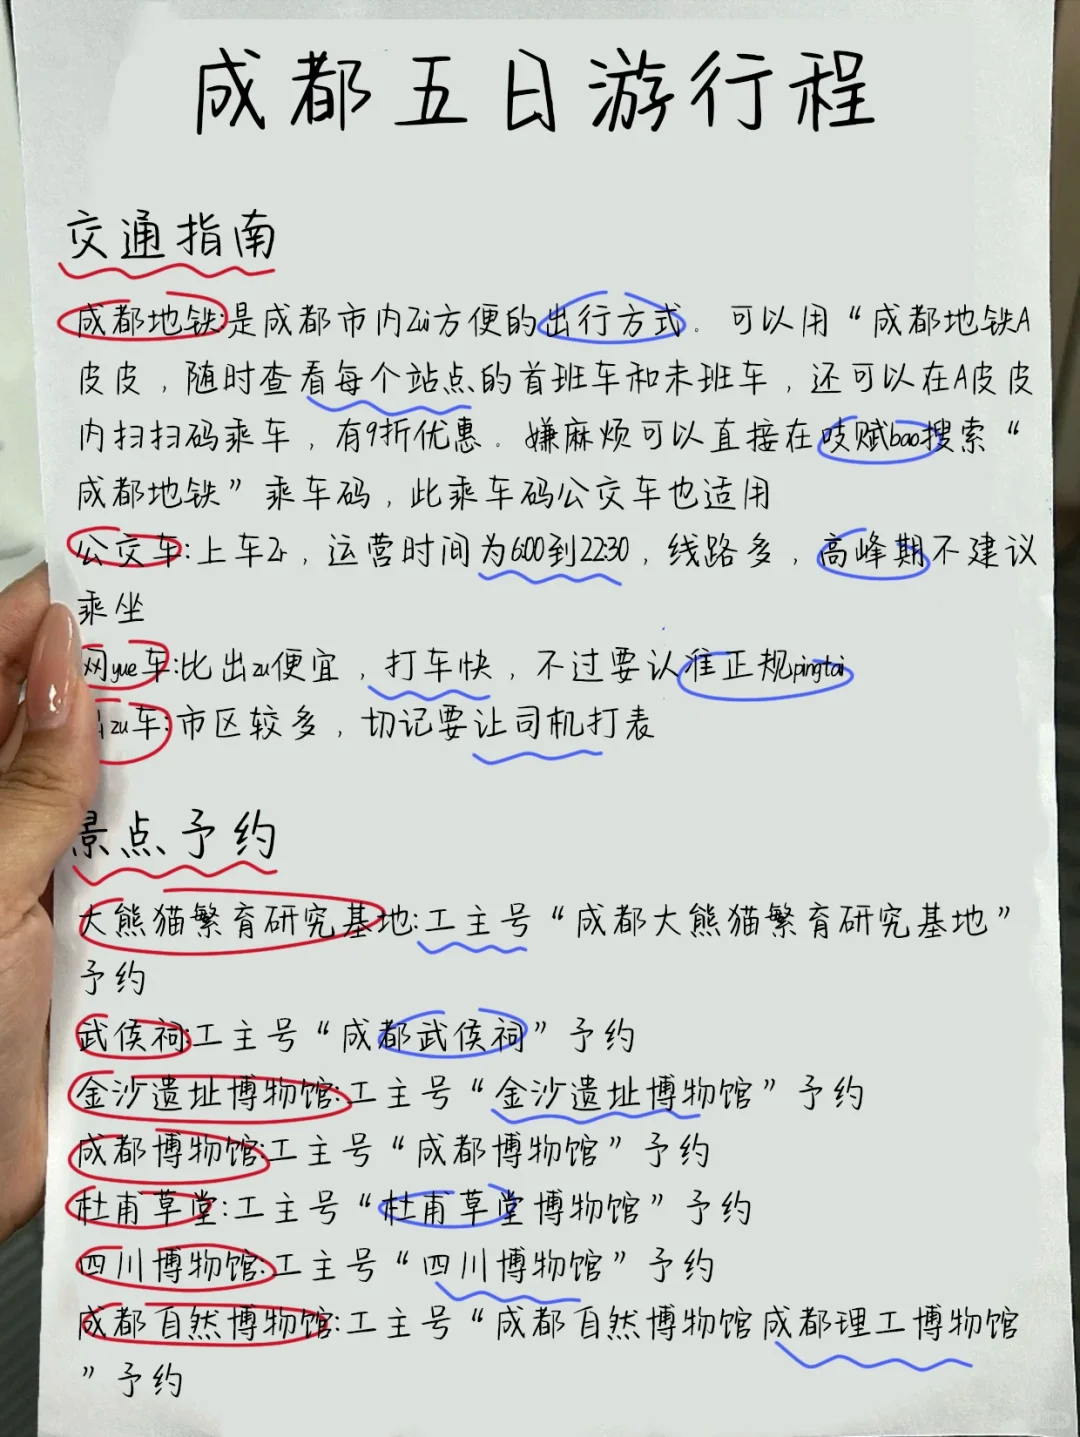 成都五日游行程
交通指南
成都地铁:是成都市内Zui方便的出行方式。可以用“成都地铁A
皮皮，随时查看每个站点的首班车和末班车，还可以在A皮皮
内扫扫码乘车，有9折优惠。嫌麻烦可以直接在吱赋bao搜索“
成都地铁”乘车码，此乘车码公交车也适用
公交车:上车2r，运营时间为6:00到22:30，线路多，高峰期不建议
乘坐
网yue车:比出zu便宜，打车快，不过要认准正规pingtai
zu车:市区较多，切记要让司机打表
景点予约
大熊猫繁育研究基地:工主号“成都大熊猫繁育研究基地”
予约
武侯祠:工主号“成都武侯祠”予约
金沙遗址博物馆:工主号“金沙遗址博物馆”予约
成都博物馆:工主号“成都博物馆”予约
杜甫草堂:工主号“杜甫草堂博物馆”予约
四川博物馆:工主号“四川博物馆”予约
成都自然博物馆:工主号“成都自然博物馆成都理工博物馆
”予约